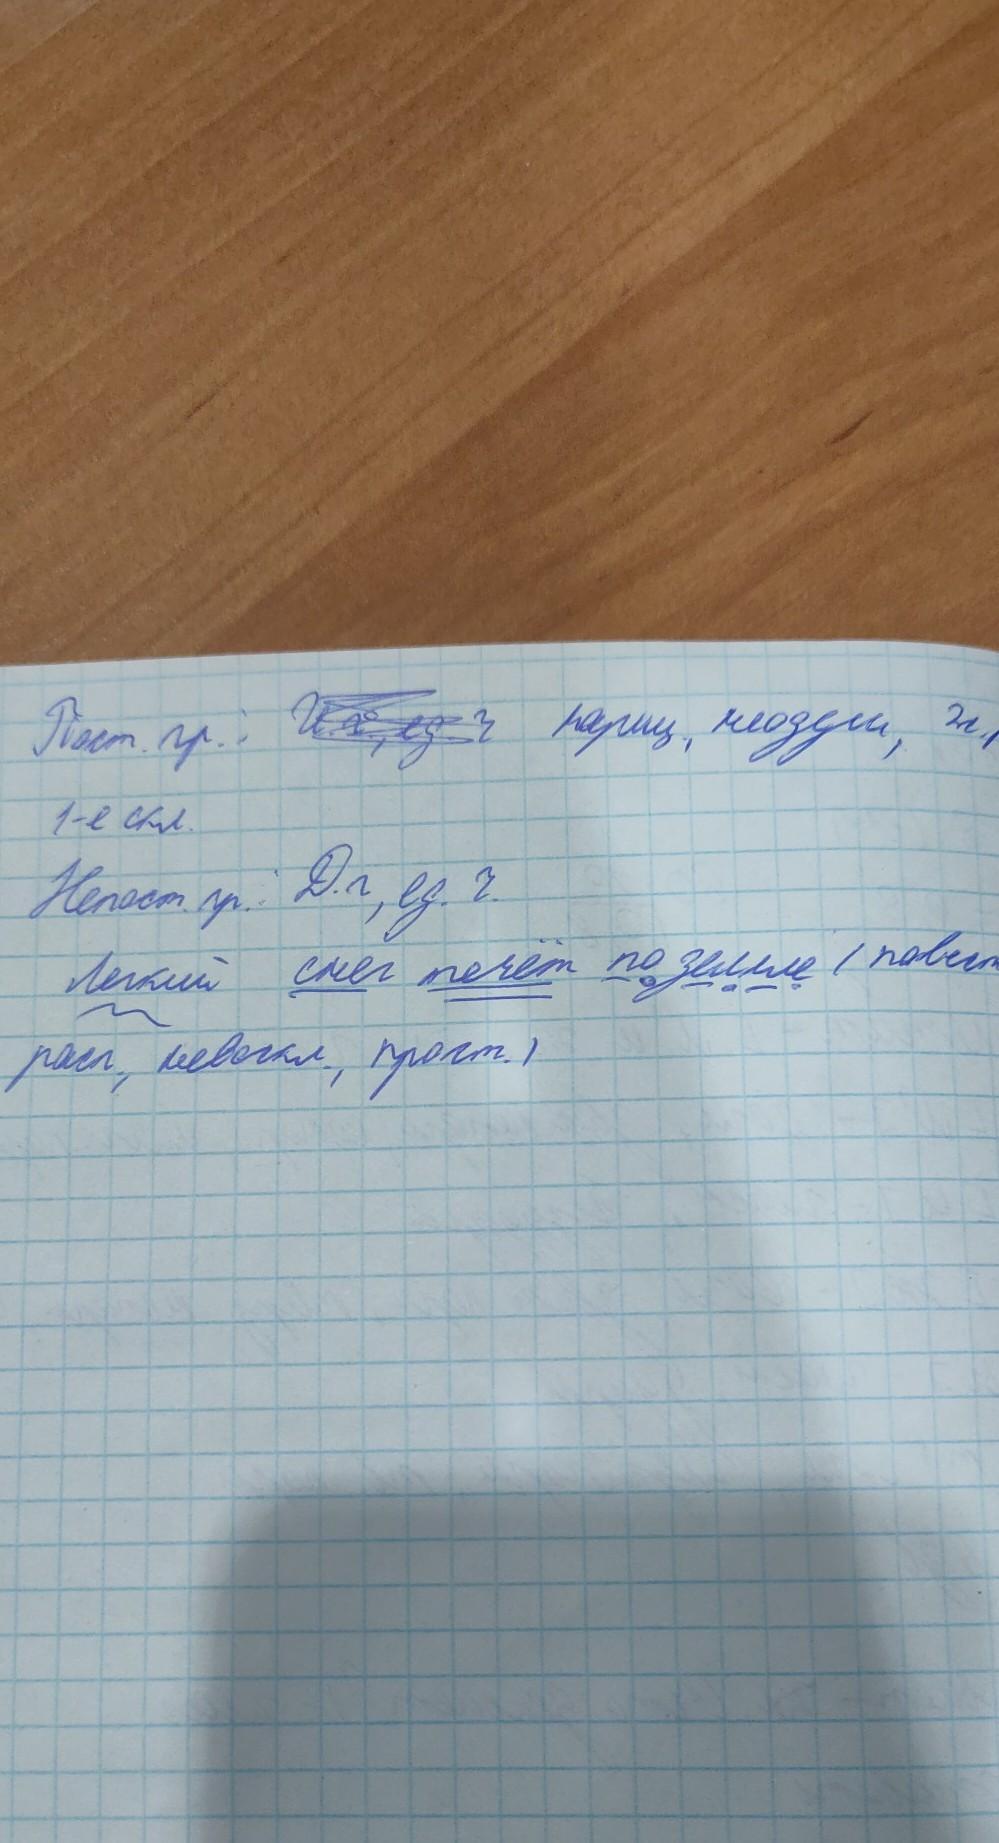 Пост. гр.: нариц., неодуш, ж.р
1-е скл.
Непост. гр.: Д.п, ед. ч.
Легкий снег течёт по земле ( повеств
расп., невоскл., прост. )